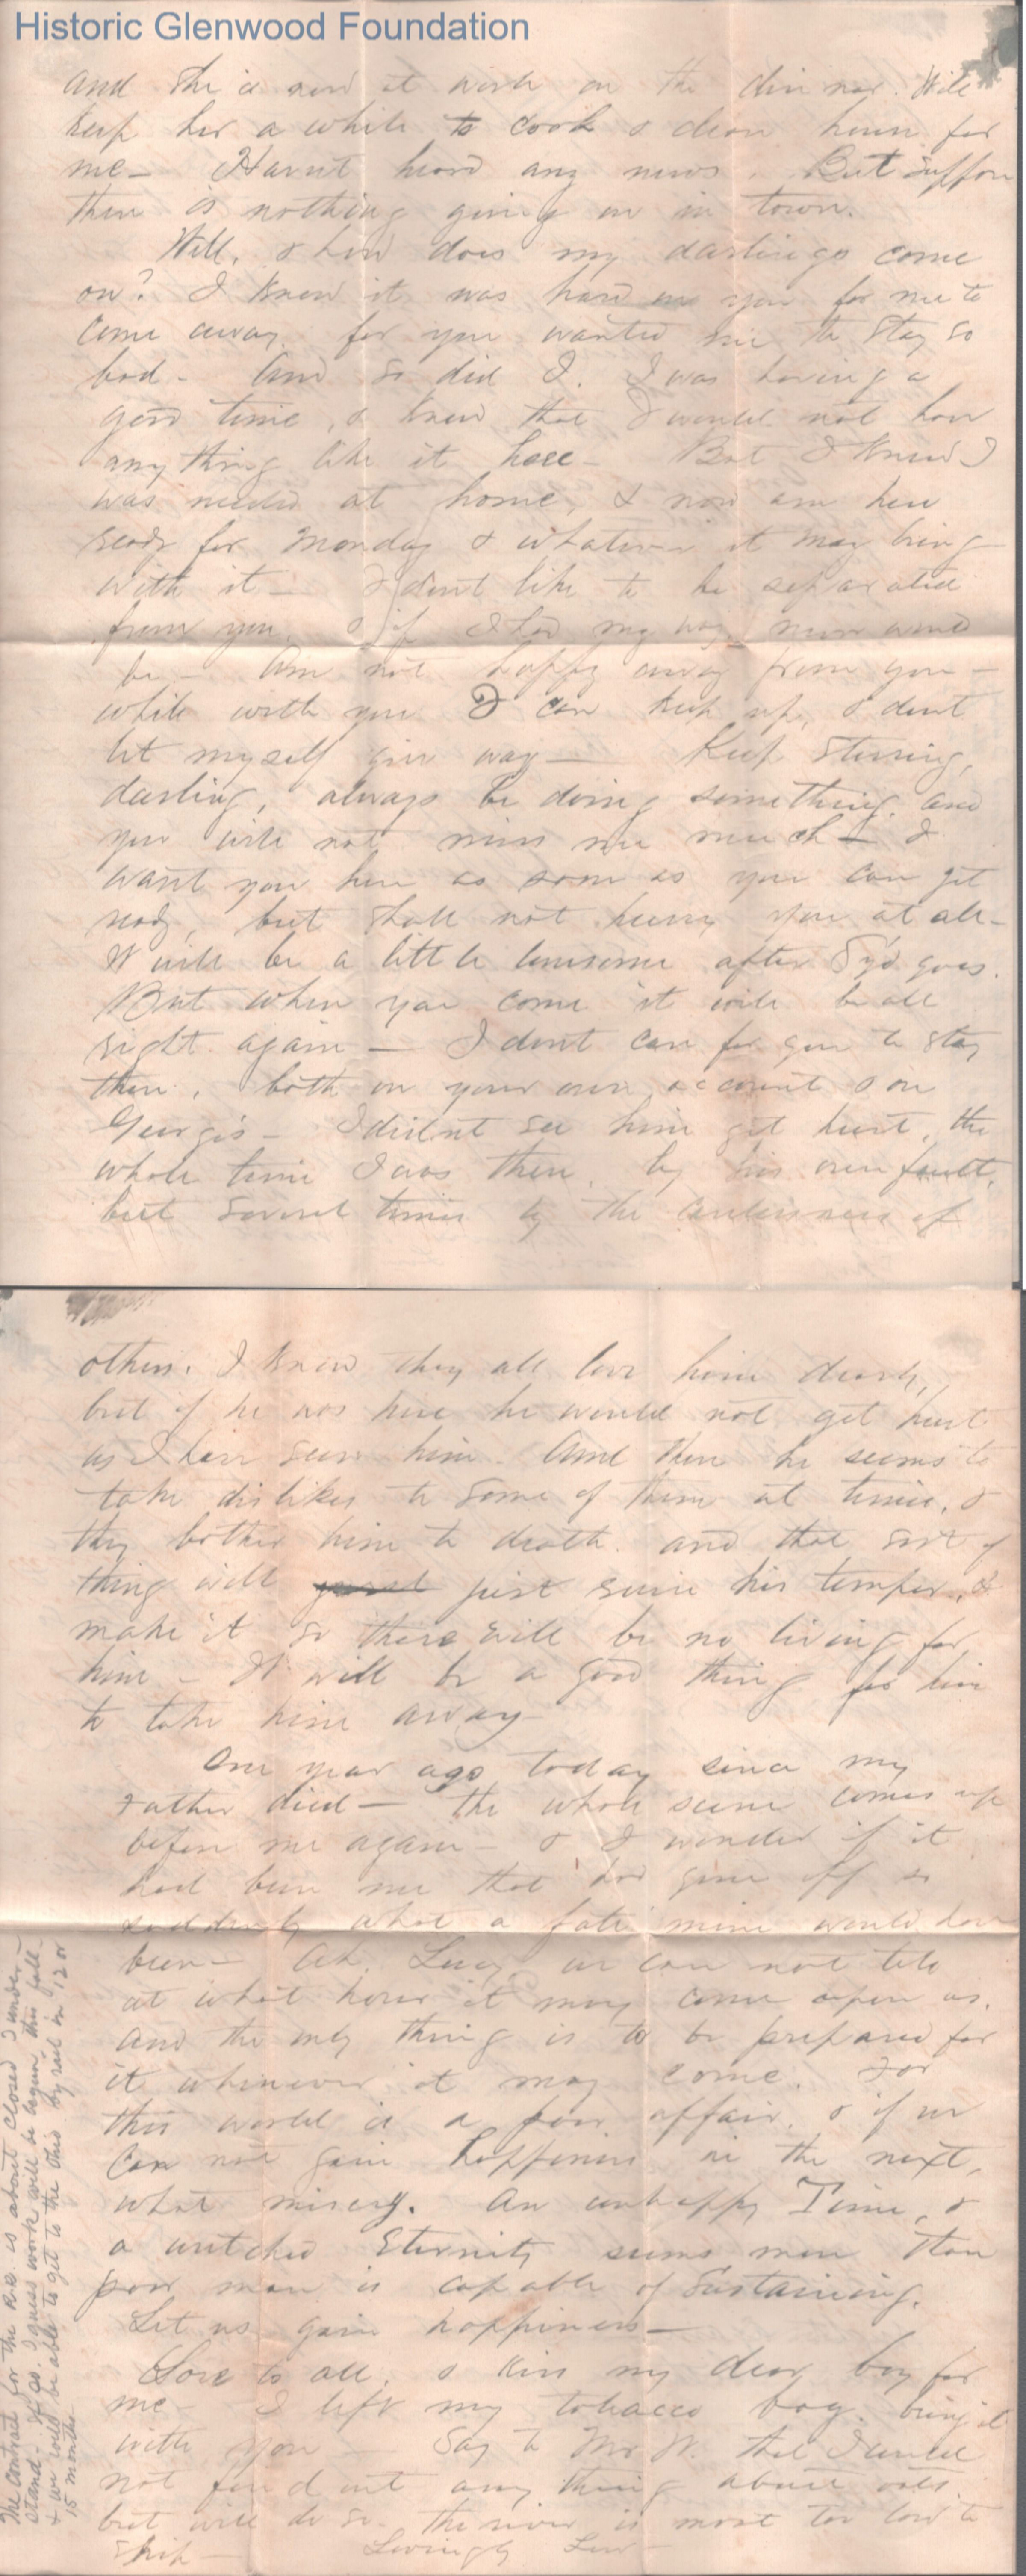 Historic Glenwood Foundation
and she is now at work on the dinner. Will
keep her a while to cook & clean house for
me— Havnt heard any news. But suppose
there is nothing going on in town.
Well, & how does my darlings come
on? I know it was hard on you for me to
come away, for you wanted me to stay so
bad— And so did I. I was having a
good time, & knew that I would not have
any thing like it here— But I knew I
was needed at home, & now am here
ready for Monday & whatever it may bring
with it— I dont like to be separated
from you, & if I had my way never would
be— Am not happy away from you—
while with you I can keep up, & dont
let myself give way— Keep stirring,
darling, always be doing something, and
you will not miss me much— I
want you here as soon as you can get
ready, but shall not hurry you at all—
It will be a little lonesome after Syd goes.
But when you come it will be all
right again— I dont care for you to stay
there, both on your own account & on
Georgie's— I didnt see him get hurt, the
whole time I was there, by his own fault,
but several times by the carelessness of
others. I know they all love him dearly,
but if he was here he would not get hurt
as I have seen him. And then he seems to
take dislikes to some of them at times, &
they bother him to death. and that sort of
thing will just ruin his temper, &
make it so there will be no living for
him— It will be a good thing for him
to take him away—
One year ago today since my
Father died— the whole scene comes up
before me again— & I wonder if it
had been me that had gone off so
suddenly what a fate mine would have
been— Ah, Lucy we can not tell
at what hour it may come upon us.
and the only thing is to be prepared for
it whenever it may come. For
this world is a poor affair, & if we
can not gain happiness in the next,
what misery. An unhappy Time, &
a wretched Eternity seems more than
poor man is capable of sustaining.
Let us gain happiness—
Love to all, & kiss my dear boy for
me— I left my tobacco bag. bring it
with you— Say to Mr W. that I could
not find out any thing about oats
but will do so. the river is most too low to
ship— Lovingly
The contract for the R.R. is about closed I under-
stand— If so, I guess work will be begun this fall—
& we will be able to get to the Ohio by rail in 12 or
15 months—